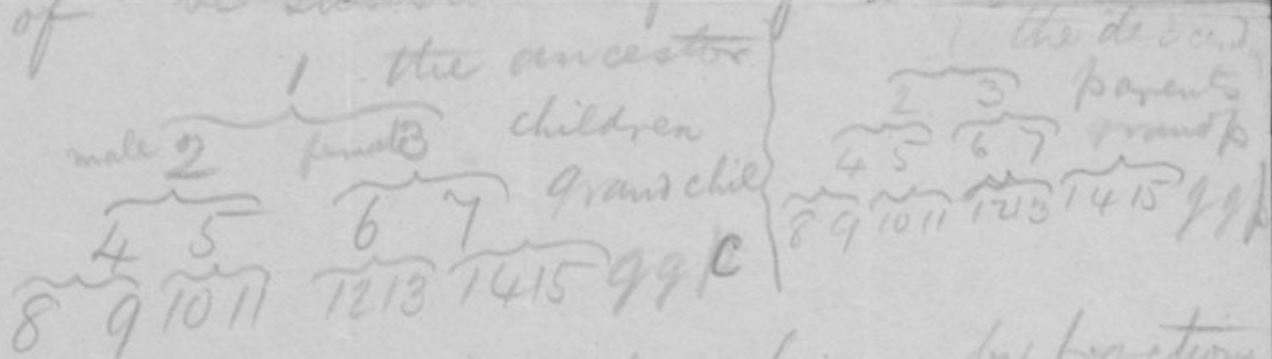 of
1 the ancestor
male 2 female 3 children
4 5 6 7 grandchil
8 9 10 11 12 13 14 15 ggc
1 the
2 3 parents
4 5 6 7 grandp
8 9 10 11 12 13 14 15 ggp
by